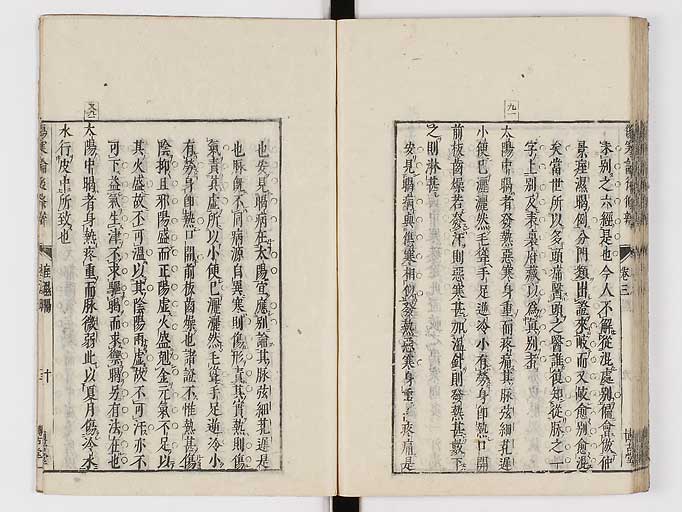 表別之六經是也今人不解從混處別徧會做仲
景痙濕暍例分門類出證來岐而又岐愈別愈混
矣當世所以多頭痛醫頭之醫誰復知從脉之一
字上別及表裏府藏以為眞別者
九一
太陽中暍者發熱惡寒身重而疼痛其脉弦細芤遲
小便已灑灑然毛聳手足逆冷小有勞身即熱口開
前板齒燥若發汗則惡寒甚加溫針則發熱甚數下
之則淋甚
安見暍病與傷寒相似發熱惡寒身重疼痛是
卷三
也安見暍病在太陽宜應別論其脉弦細芤遲是
也脉既不同病源自異寒則傷形責其實熱則傷
氣責其虛所以小便已灑灑然毛聳手足逆冷小
有勞身即熱口開前板齒燥也諸證不惟熱甚傷
陰抑且邪陽盛而正陽虛火盛尅金元氣不足以
其火盛故不可溫以其陰陽兩虛故不可汗亦不
可下益氣生津不求攣暍而求攣暍另有法在也
太陽中暍者身熱疼重而脉微弱此以夏月傷冷水
水行皮中所致也
傷寒論後條辨
痙濕暍
十